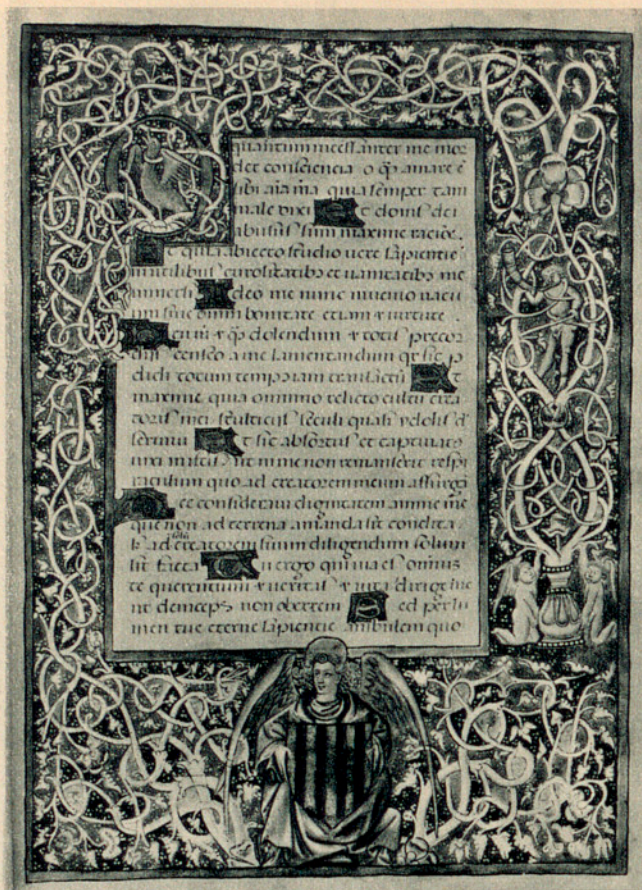 quantum meest inter me mor
det consciencia o qp amare e
sibi aia ma quia semper tam
male vixi Et donis dei
abusus sum maxime racioe.
Et quia abiecto studio vere sapientie
inutilibus curositatibs et vanitatibs me
inmersi Ideo me nunc invenio vacu
um sine omni bonitate etiam virtute
dolendum totis precor
censeo a me lamentandum
didi totum temps iam
maxime quia omnino relicto cultu crea
toris mei stulticiis seculi quasi ydolis
servivi Et sic absortus et captivats
vixi in illis ut in me non remanserit respi
raculum quo ad creatorem meum assurga
consideravi dignitatem anime me
que non ad terrena amanda sit condita
sed ad creatorem suum diligendum solum
sit facta Tu ergo qui via es omnius
te querentium veritas vita dirige me
ut deinceps non obertem Sed per lu
men tue eterne sapientie ambulem quo